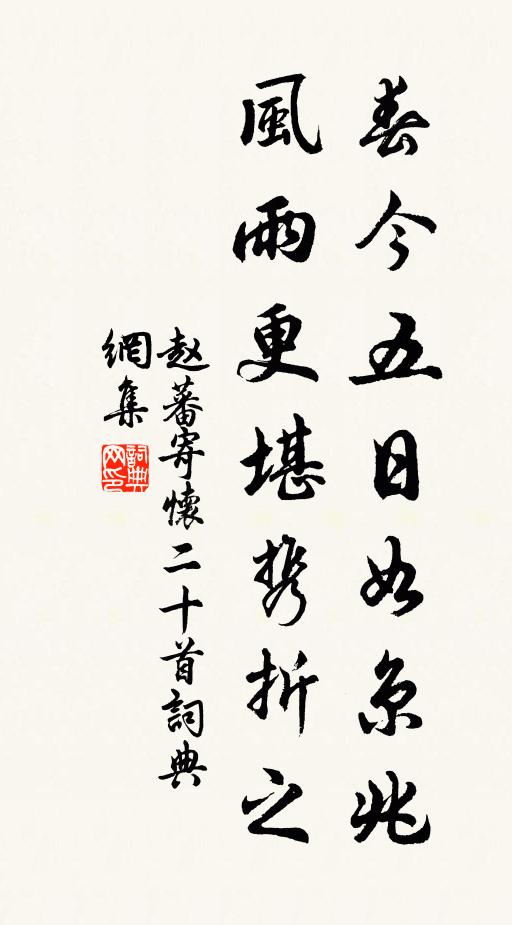 春今五日如京兆
風雨更堪携折之
赵蕃寄懷二十首詞典
網集
詞典網印